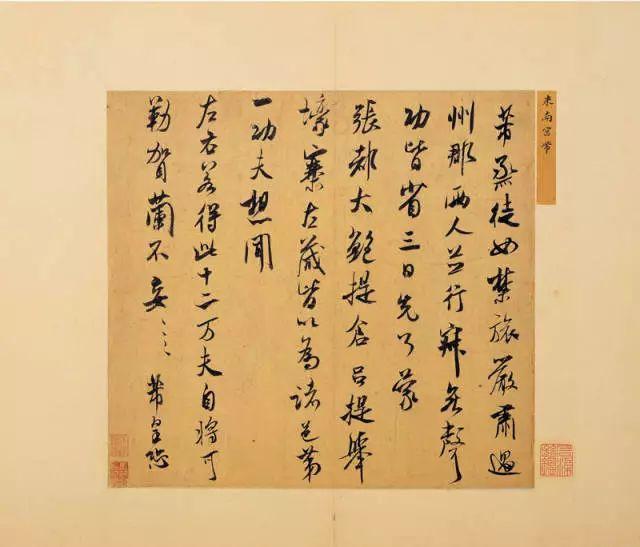 米南宮芾
芾烝徒如禁旅嚴肅過
州郡兩人並行寂無聲
功皆省三日先了蒙
張都大鮑提倉呂提舉
壕寨左藏皆以為諸邑第
一功夫想聞
左右若得此十二万夫自將可
勒賀蘭不妄〻〻 芾皇恐